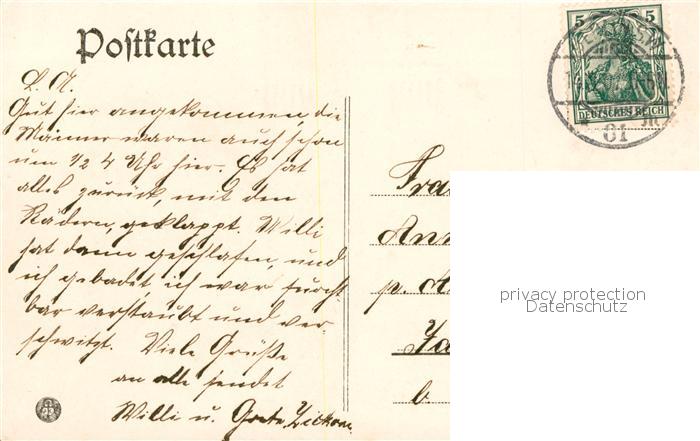 Postkarte
L. A.
Gut hier angekommen, die
Männer waren auch schon
um 1/2 4 Uhr hier. Es hat
alles zurück, mit den
Rädern, geklappt. Willi
hat dann geschlafen, und
ich gebadet ich war furcht-
bar verstaubt und ver-
schwitzt. Viele Grüße
an alle sendet
Willi u. Grete
5 5
DEUTSCHES REICH
61
Frau
p.
b.
privacy protection
Datenschutz